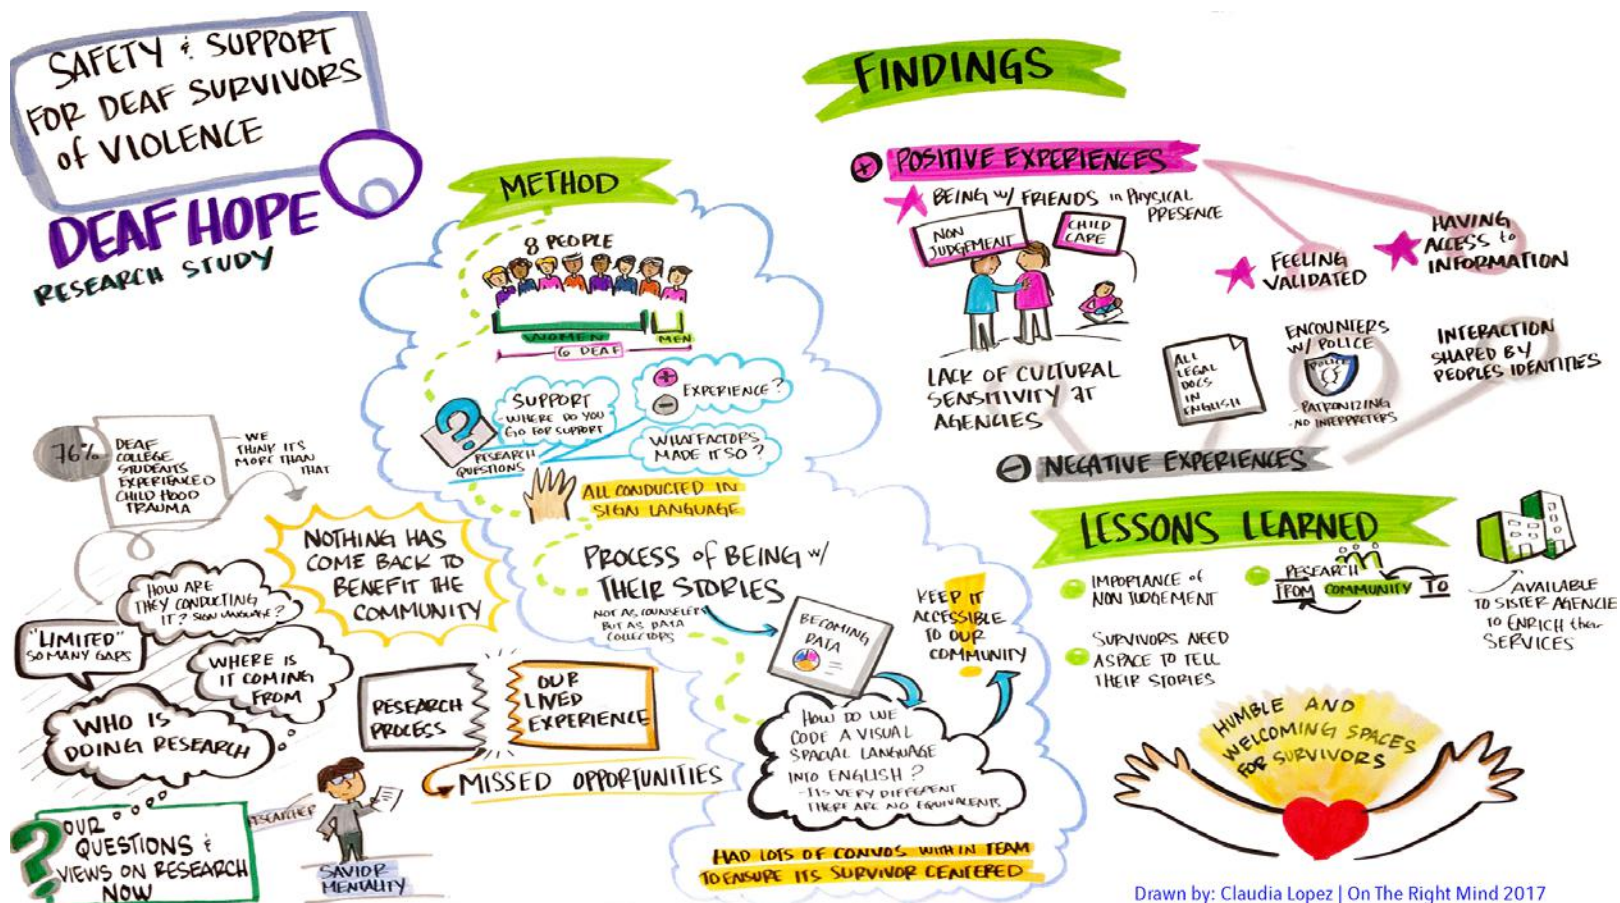 SAFETY & SUPPORT
FOR DEAF SURVIVORS
of VIOLENCE
DEAF HOPE
RESEARCH STUDY
76%
DEAF
COLLEGE
STUDENTS
EXPERIENCED
CHILD HOOD
TRAUMA
WE
THINK IT'S
MORE THAN
THAT
NOTHING HAS
COME BACK TO
BENEFIT THE
COMMUNITY
HOW ARE
THEY CONDUCTING
IT? SIGN LANGUAGE?
"LIMITED"
SO MANY GAPS
WHERE IS
IT COMING
FROM
WHO IS
DOING RESEARCH
OUR
QUESTIONS &
VIEWS ON RESEARCH
NOW
RESEARCHER
SAVIOR
MENTALITY
RESEARCH
PROCESS
OUR
LIVED
EXPERIENCE
MISSED OPPORTUNITIES
METHOD
8 PEOPLE
WOMEN
MEN
6 DEAF
RESEARCH
QUESTIONS
SUPPORT
- WHERE DO YOU
GO FOR SUPPORT
+
-
EXPERIENCE?
WHAT FACTORS
MADE IT SO?
ALL CONDUCTED IN
SIGN LANGUAGE
PROCESS of BEING w/
THEIR STORIES
NOT AS COUNSELERS
BUT AS DATA
COLLECTORS
BECOMING
DATA
KEEP IT
ACCESSIBLE
TO OUR
COMMUNITY
HOW DO WE
CODE A VISUAL
SPACIAL LANGUAGE
INTO ENGLISH?
- ITS VERY DIFFERENT
THERE ARE NO EQUIVALENTS
HAD LOTS OF CONVOS WITH IN TEAM
TO ENSURE ITS SURVIVOR CENTERED
FINDINGS
+ POSITIVE EXPERIENCES
BEING w/ FRIENDS in PHYSICAL
PRESENCE
NON
JUDGEMENT
CHILD
CARE
FEELING
VALIDATED
HAVING
ACCESS to
INFORMATION
LACK OF CULTURAL
SENSITIVITY AT
AGENCIES
ALL
LEGAL
DOCS
IN
ENGLISH
ENCOUNTERS
W/ POLICE
POLICE
- PATRONIZING
- NO INTERPRETERS
INTERACTION
SHAPED BY
PEOPLES IDENTITIES
- NEGATIVE EXPERIENCES
LESSONS LEARNED
IMPORTANCE of
NON JUDGEMENT
SURVIVORS NEED
A SPACE TO TELL
THEIR STORIES
RESEARCH
FROM COMMUNITY TO
AVAILABLE
TO SISTER AGENCIE
TO ENRICH their
SERVICES
HUMBLE AND
WELCOMING SPACES
FOR SURVIVORS
Drawn by: Claudia Lopez | On The Right Mind 2017